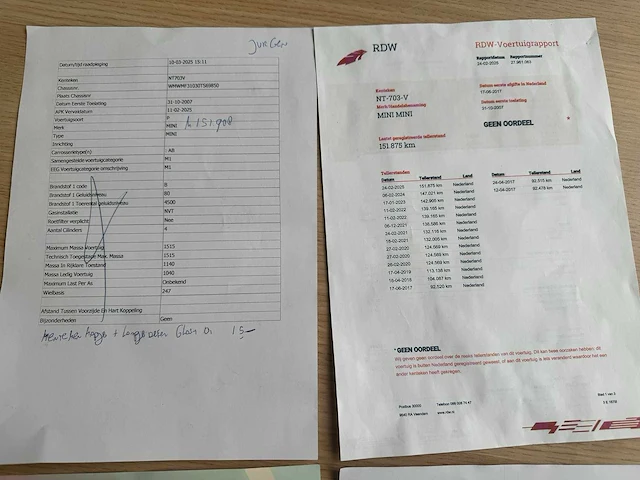 JURGEN
Datum/tijd raadpleging 10-03-2025 15:11
Kenteken NT703V
Chassisnr.
Plaats Chassisnr
Datum Eerste Toelating 31-10-2007
APK Vervaldatum 11-02-2025
Voertuigsoort P
Merk MINI
151.900
Type MINI
Inrichting
Carrosserietype(n) : AB
Samengestelde voertuigcategorie M1
EEG Voertuigcategorie omschrijving M1
Brandstof 1 code B
Brandstof 1 Geluidsniveau 80
Brandstof 1 Toerental geluidsniveau 4500
Gasinstallatie NVT
Roetfilter verplicht Nee
Aantal Cilinders 4
Maximum Massa Voertuig 1515
Technisch Toegestane Max. Massa 1515
Massa In Rijklare Toestand 1140
Massa Ledig Voertuig 1040
Maximum Last Per As Onbekend
Wielbasis 247
Afstand Tussen Voorzijde En Hart Koppeling
Bijzonderheden Geen
RDW
RDW-Voertuigrapport
Rapportdatum Rapportnummer
24-02-2025
Kenteken
NT-703-V
Merk/Handelsbenaming
MINI MINI
Datum eerste afgifte in Nederland
17-06-2017
Datum eerste toelating
31-10-2007
GEEN OORDEEL
Laatst geregistreerde tellerstand
151.875 km
Tellerstanden
Datum Tellerstand Land
24-02-2025 151.875 km Nederland
06-02-2024 147.021 km Nederland
17-01-2023 142.905 km Nederland
11-02-2022 139.165 km Nederland
11-02-2022 139.165 km Nederland
24-02-2021 132.115 km Nederland
18-02-2021 132.005 km Nederland
27-02-2020 124.569 km Nederland
27-02-2020 124.569 km Nederland
17-04-2019 113.138 km Nederland
17-06-2017 92.520 km Nederland
Datum Tellerstand Land
24-04-2017 92.515 km Nederland
12-04-2017 92.478 km Nederland
* GEEN OORDEEL
Wij geven geen oordeel over de reeks tellerstanden van dit voertuig. Dit kan twee oorzaken hebben: dit
voertuig is buiten Nederland geregistreerd geweest, of aan dit voertuig is iets veranderd waardoor het een
ander kenteken heeft gekregen.
www.rdw.nl